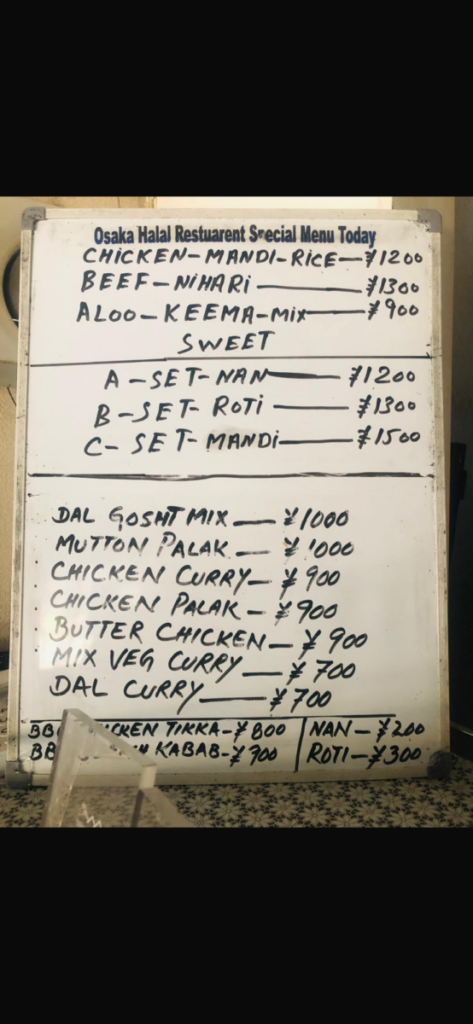 Osaka Halal Restuarent Special Menu Today
CHICKEN-MANDI-RICE-¥1200
BEEF-NIHARI-¥1300
ALOO-KEEMA-MIX-¥900
SWEET
A-SET-NAN-¥1200
B-SET-ROTI-¥1300
C-SET-MANDI-¥1500
DAL GOSHT MIX-¥1000
MUTTON PALAK-¥1000
CHICKEN CURRY-¥900
CHICKEN PALAK-¥900
BUTTER CHICKEN-¥900
MIX VEG CURRY-¥700
DAL CURRY-¥700
TIKKA-¥800 NAN-¥200
KABAB-¥700 ROTI-¥300